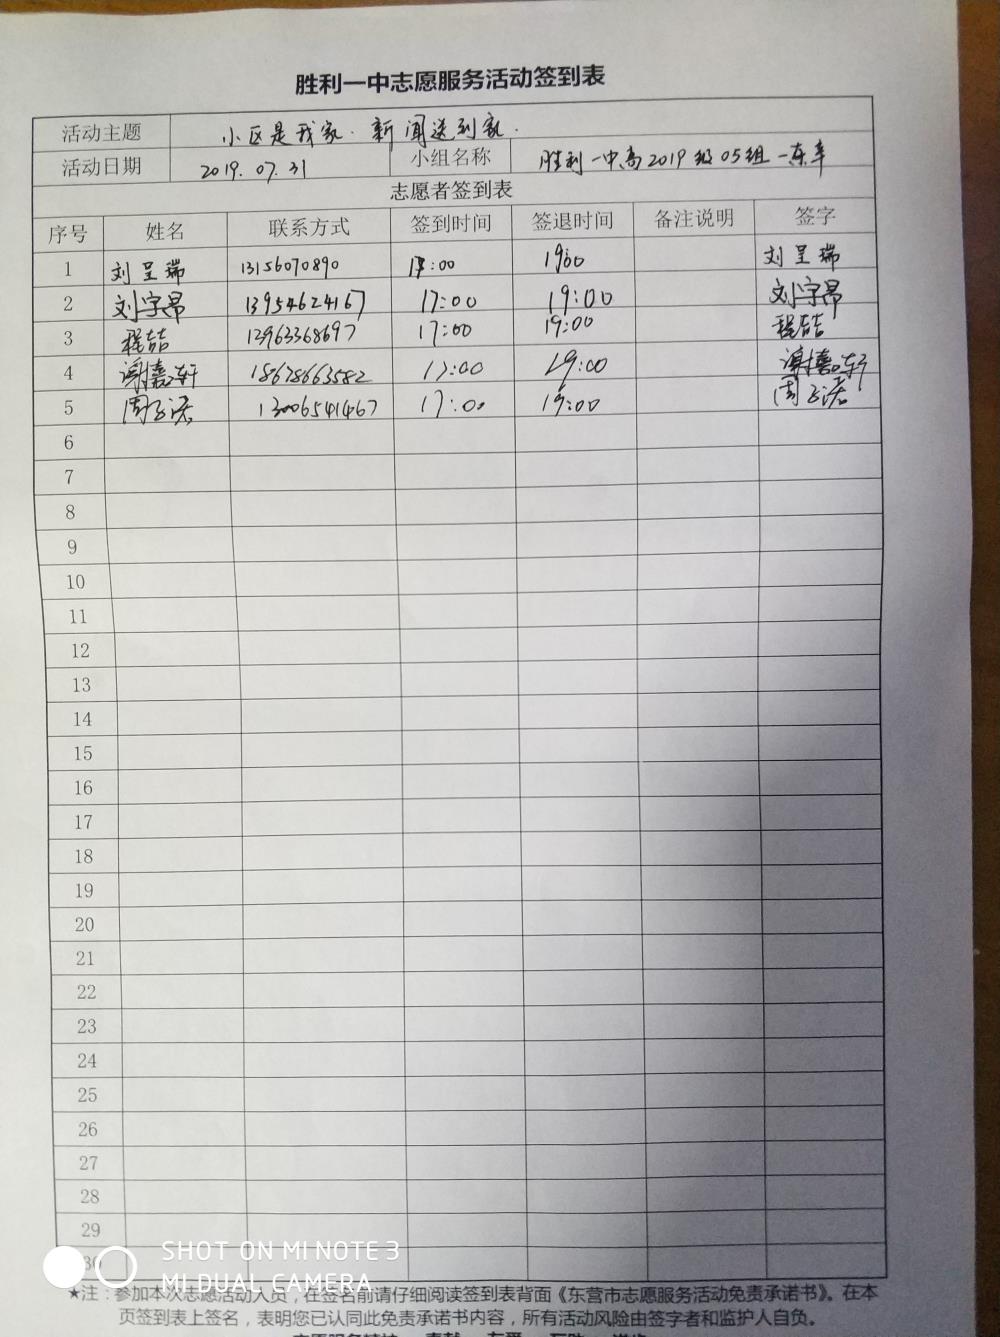 胜利一中志愿服务活动签到表
活动主题 小区是我家.新闻送到家.
活动日期 2019.07.31 小组名称 胜利一中高2019级05组-东辛
志愿者签到表
序号 姓名 联系方式 签到时间 签退时间 备注说明 签字
1 刘呈瑞 13156070890 17:00 19:00 刘呈瑞
2 刘宇昂 13954624167 17:00 19:00 刘宇昂
3 程喆 13963368697 17:00 19:00 程喆
4 谢嘉轩 18678663582 17:00 19:00 谢嘉轩
5 周子诺 13006541467 17:00 19:00 周子诺
6
7
8
9
10
11
12
13
14
15
16
17
18
19
20
21
22
23
24
25
26
27
28
29
30
SHOT ON MI NOTE 3
MI DUAL CAMERA
★注：参加本次志愿活动人员，在签名前请仔细阅读签到表背面《东营市志愿服务活动免责承诺书》。在本
页签到表上签名，表明您已认同此免责承诺书内容，所有活动风险由签字者和监护人自负。